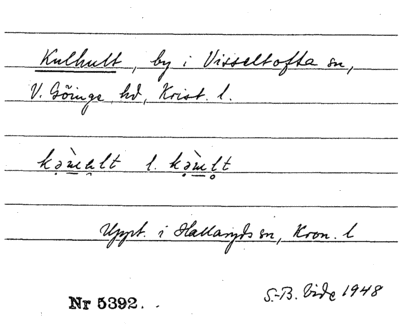 Kulhult, by i Visseltofta sn,
V. Göinge hd, Krist. l.
kə̀məlt l. kə̀ml̥t
Uppt. i Hallaryds sn, Kron. l
S.-B. Vide 1948
Nr 5392.